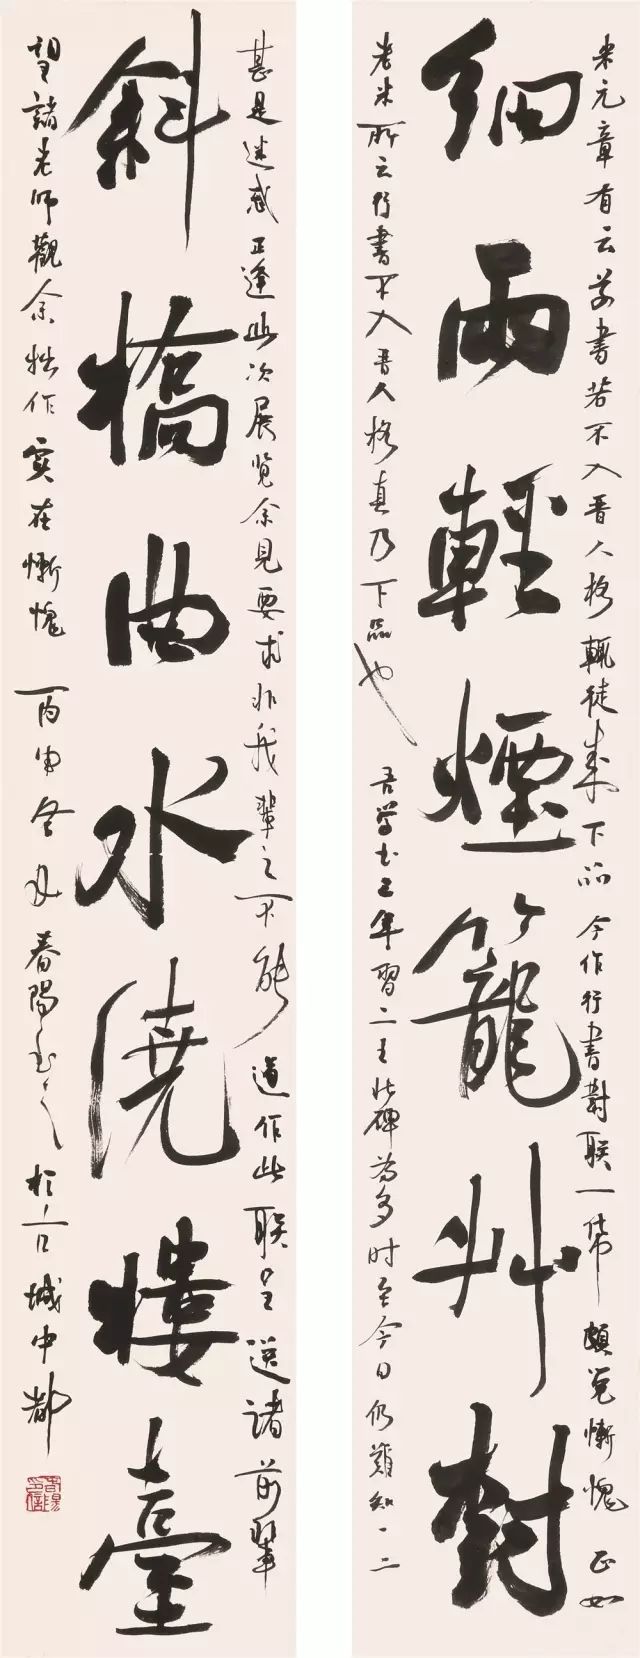 米元章有云草書若不入晋人格輒徒成下品今作行書對联一幅頗覺慚愧正如
細雨輕煙籠艸樹
老米所云行書不入晋人格真乃下品也吾学书五年習二王北碑为多时至今日仍難知一二
甚是迷惑正逢此次展览余見要求非我輩之不能 作此联呈送諸前輩
斜橋曲水繞樓臺
望諸老师觀余拙作实在慚愧丙申冬月春陽书於古城中都